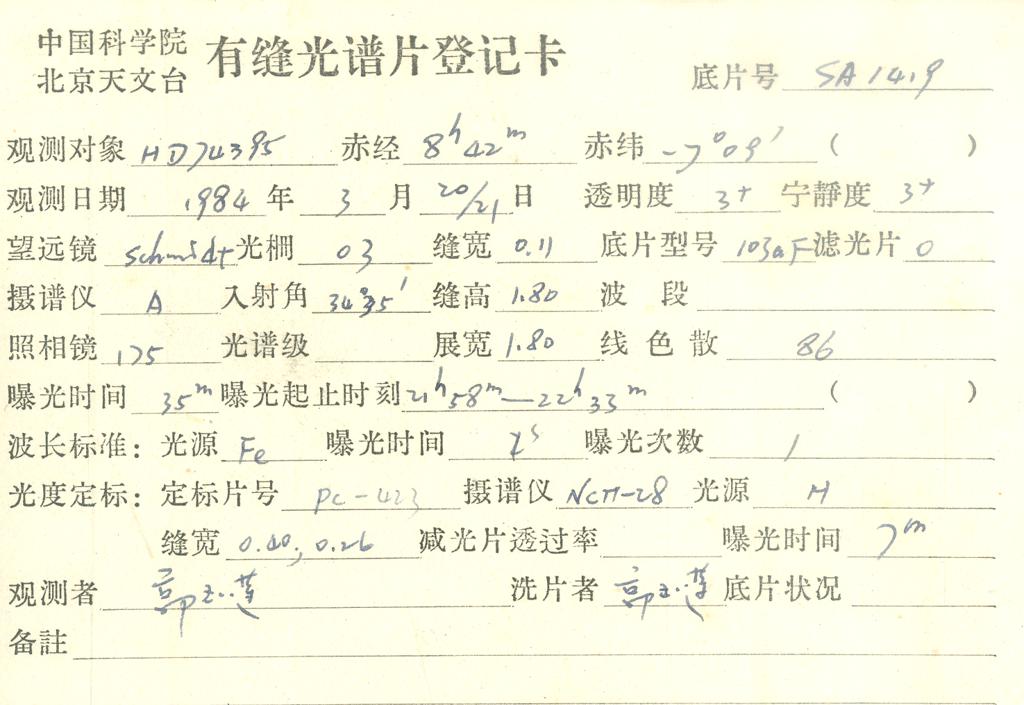 中国科学院
北京天文台
有缝光谱片登记卡
底片号 SA1419
观测对象 HD74395 赤经 8h42m 赤纬 -7°09′ ( )
观测日期 1984 年 3 月 20/21 日 透明度 3+ 宁静度 3+
望远镜 Schmidt 光栅 03 缝宽 0.11 底片型号 103aF 滤光片 0
摄谱仪 A 入射角 34°35′ 缝高 1.80 波段
照相镜 175 光谱级 展宽 1.80 线色散 86
曝光时间 35m 曝光起止时刻 21h58m—22h33m ( )
波长标准: 光源 Fe 曝光时间 曝光次数 1
光度定标: 定标片号 PC-423 摄谱仪 光源 H
缝宽 0.40, 0.26 减光片透过率 曝光时间 7m
观测者 洗片者 底片状况
备註